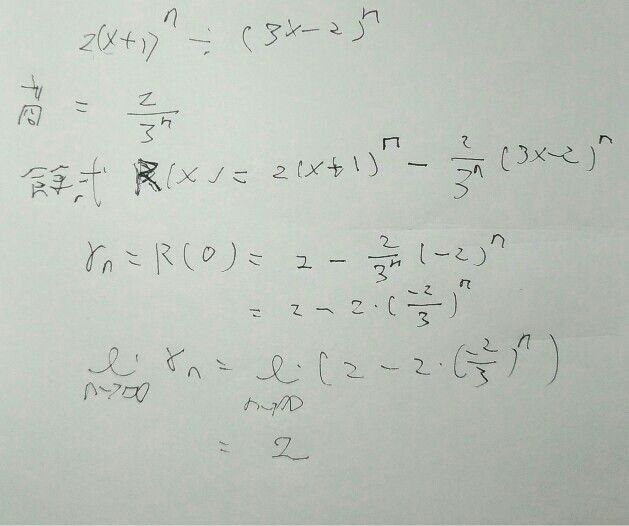 2(x+1)^n ÷ (3x-2)^n
商 = 2/3^n
餘式 R(x) = 2(x+1)^n - 2/3^n (3x-2)^n
r_n = R(0) = 2 - 2/3^n (-2)^n
= 2 - 2·(-2/3)^n
li_{n→∞} r_n = li_{n→∞} (2 - 2·(-2/3)^n)
= 2